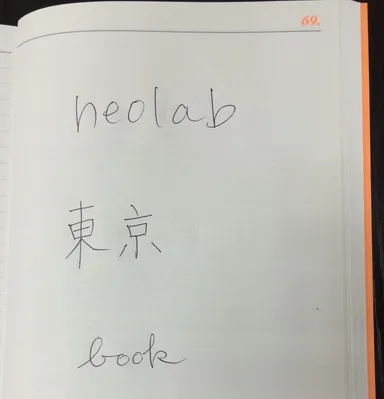 69.
neolab
東京
book